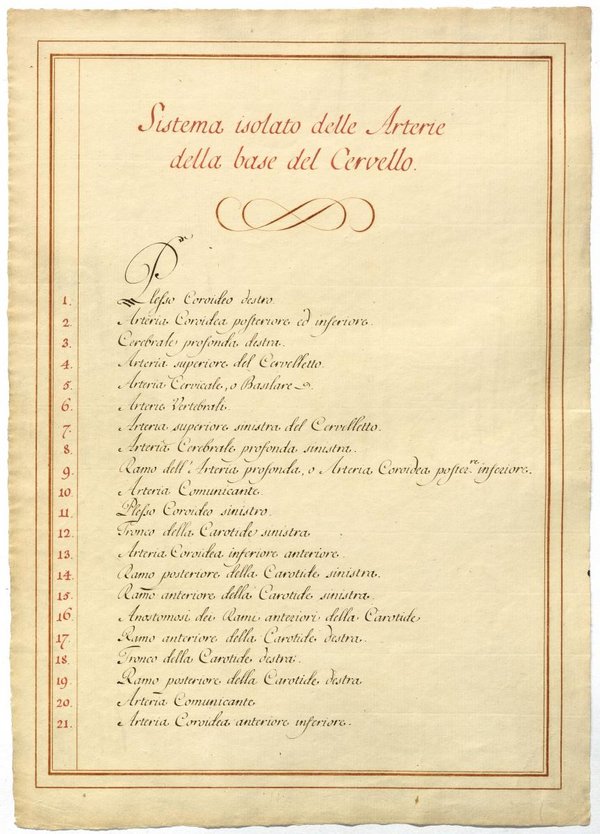 Sistema isolato delle Arterie
della base del Cervello.
1. Plesso Coroideo destro.
2. Arteria Coroidea posteriore ed inferiore.
3. Cerebrale profonda destra.
4. Arteria superiore del Cervelletto.
5. Arteria Cervicale, o Basilare.
6. Arterie Vertebrali.
7. Arteria superiore sinistra del Cervilletto.
8. Arteria Cerebrale profonda sinistra.
9. Ramo dell'Arteria profonda, o Arteria Coroidea poster.re inferiore.
10. Arteria Comunicante.
11. Plesso Coroideo sinistro.
12. Tronco della Carotide sinistra.
13. Arteria Coroidea inferiore anteriore.
14. Ramo posteriore della Carotide sinistra.
15. Ramo anteriore della Carotide sinistra.
16. Anostomosi dei Rami anteriori della Carotide
17. Ramo anteriore della Carotide destra.
18. Tronco della Carotide destra.
19. Ramo posteriore della Carotide destra
20. Arteria Comunicante
21. Arteria Coroidea anteriore inferiore.